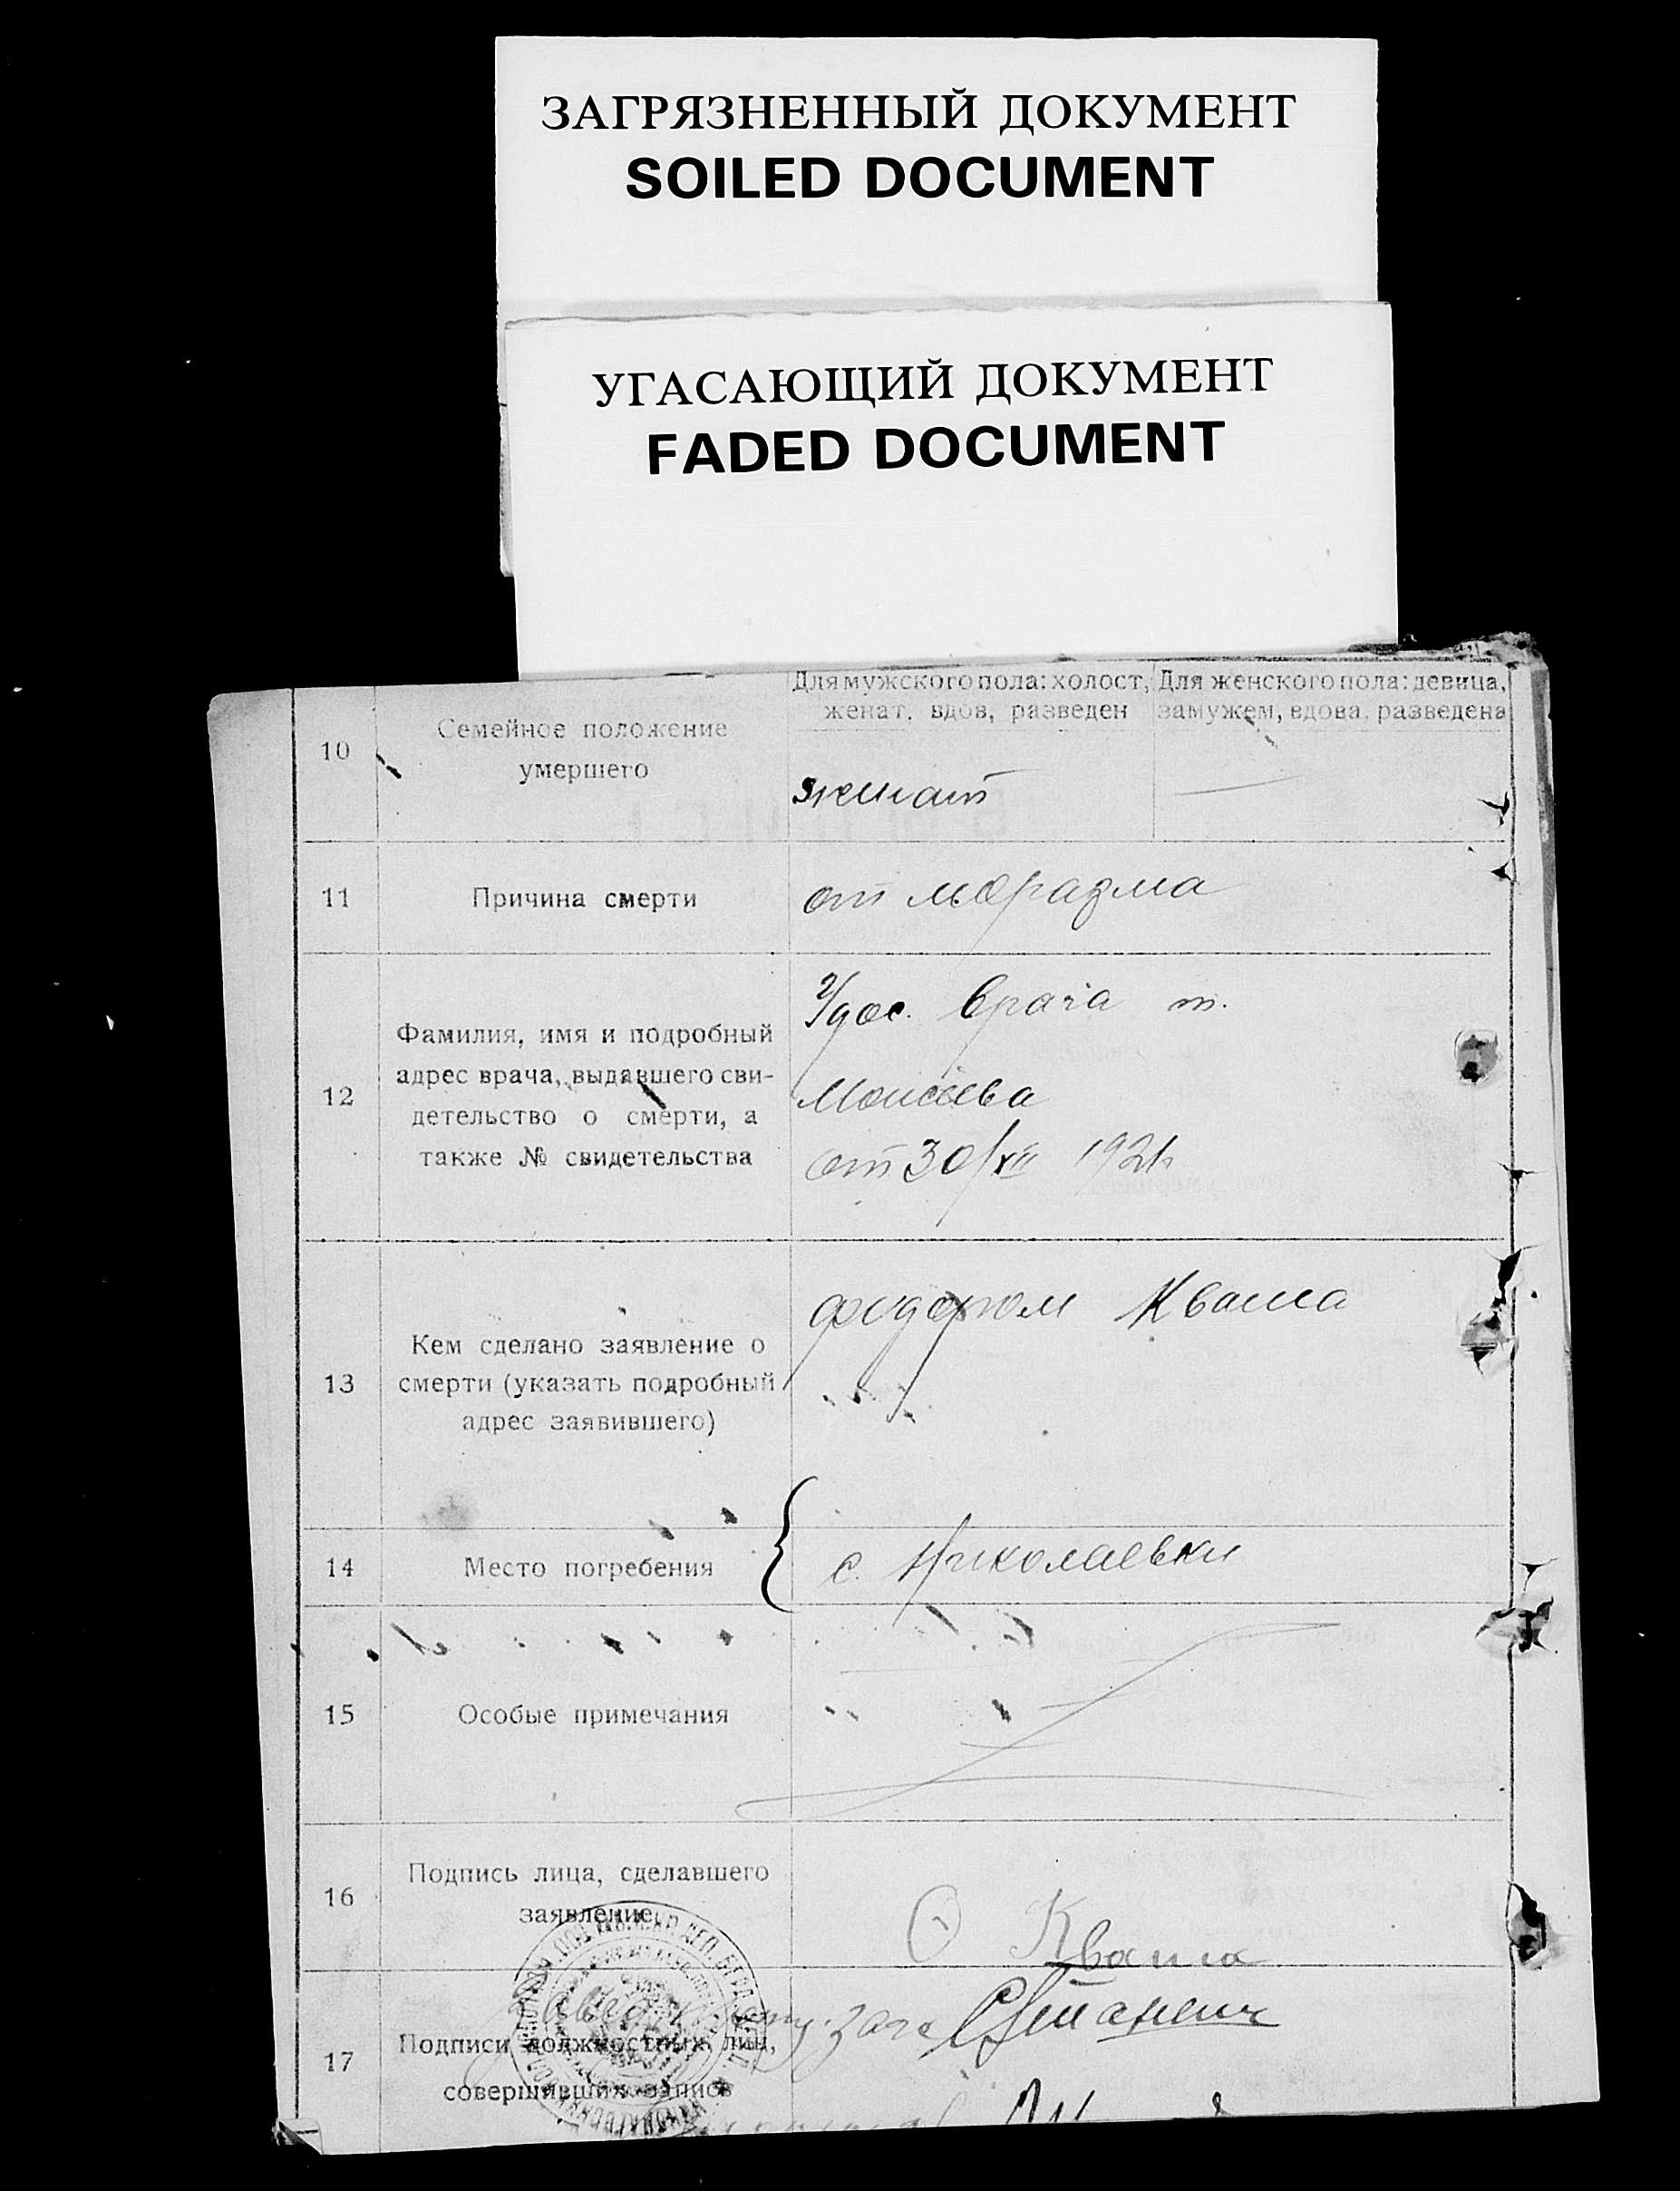 ЗАГРЯЗНЕННЫЙ ДОКУМЕНТ
SOILED DOCUMENT
УГАСАЮЩИЙ ДОКУМЕНТ
FADED DOCUMENT
10
Семейное положение
умершего
Для мужского пола: холост,
женат, вдов, разведен
Для женского пола: девица,
замужем, вдова, разведена
женат
11
Причина смерти
от моразма
12
Фамилия, имя и подробный
адрес врача, выдавшего сви-
детельство о смерти, а
также № свидетельства
Удос. врача т.
Моисеева
от 30/XII 192
13
Кем сделано заявление о
смерти (указать подробный
адрес заявившего)
федором Кваша
14
Место погребения
с. Николаевки
15
Особые примечания
16
Подпись лица, сделавшего
заявление
Кваша
17
Подписи должностных лиц,
совершивших запись